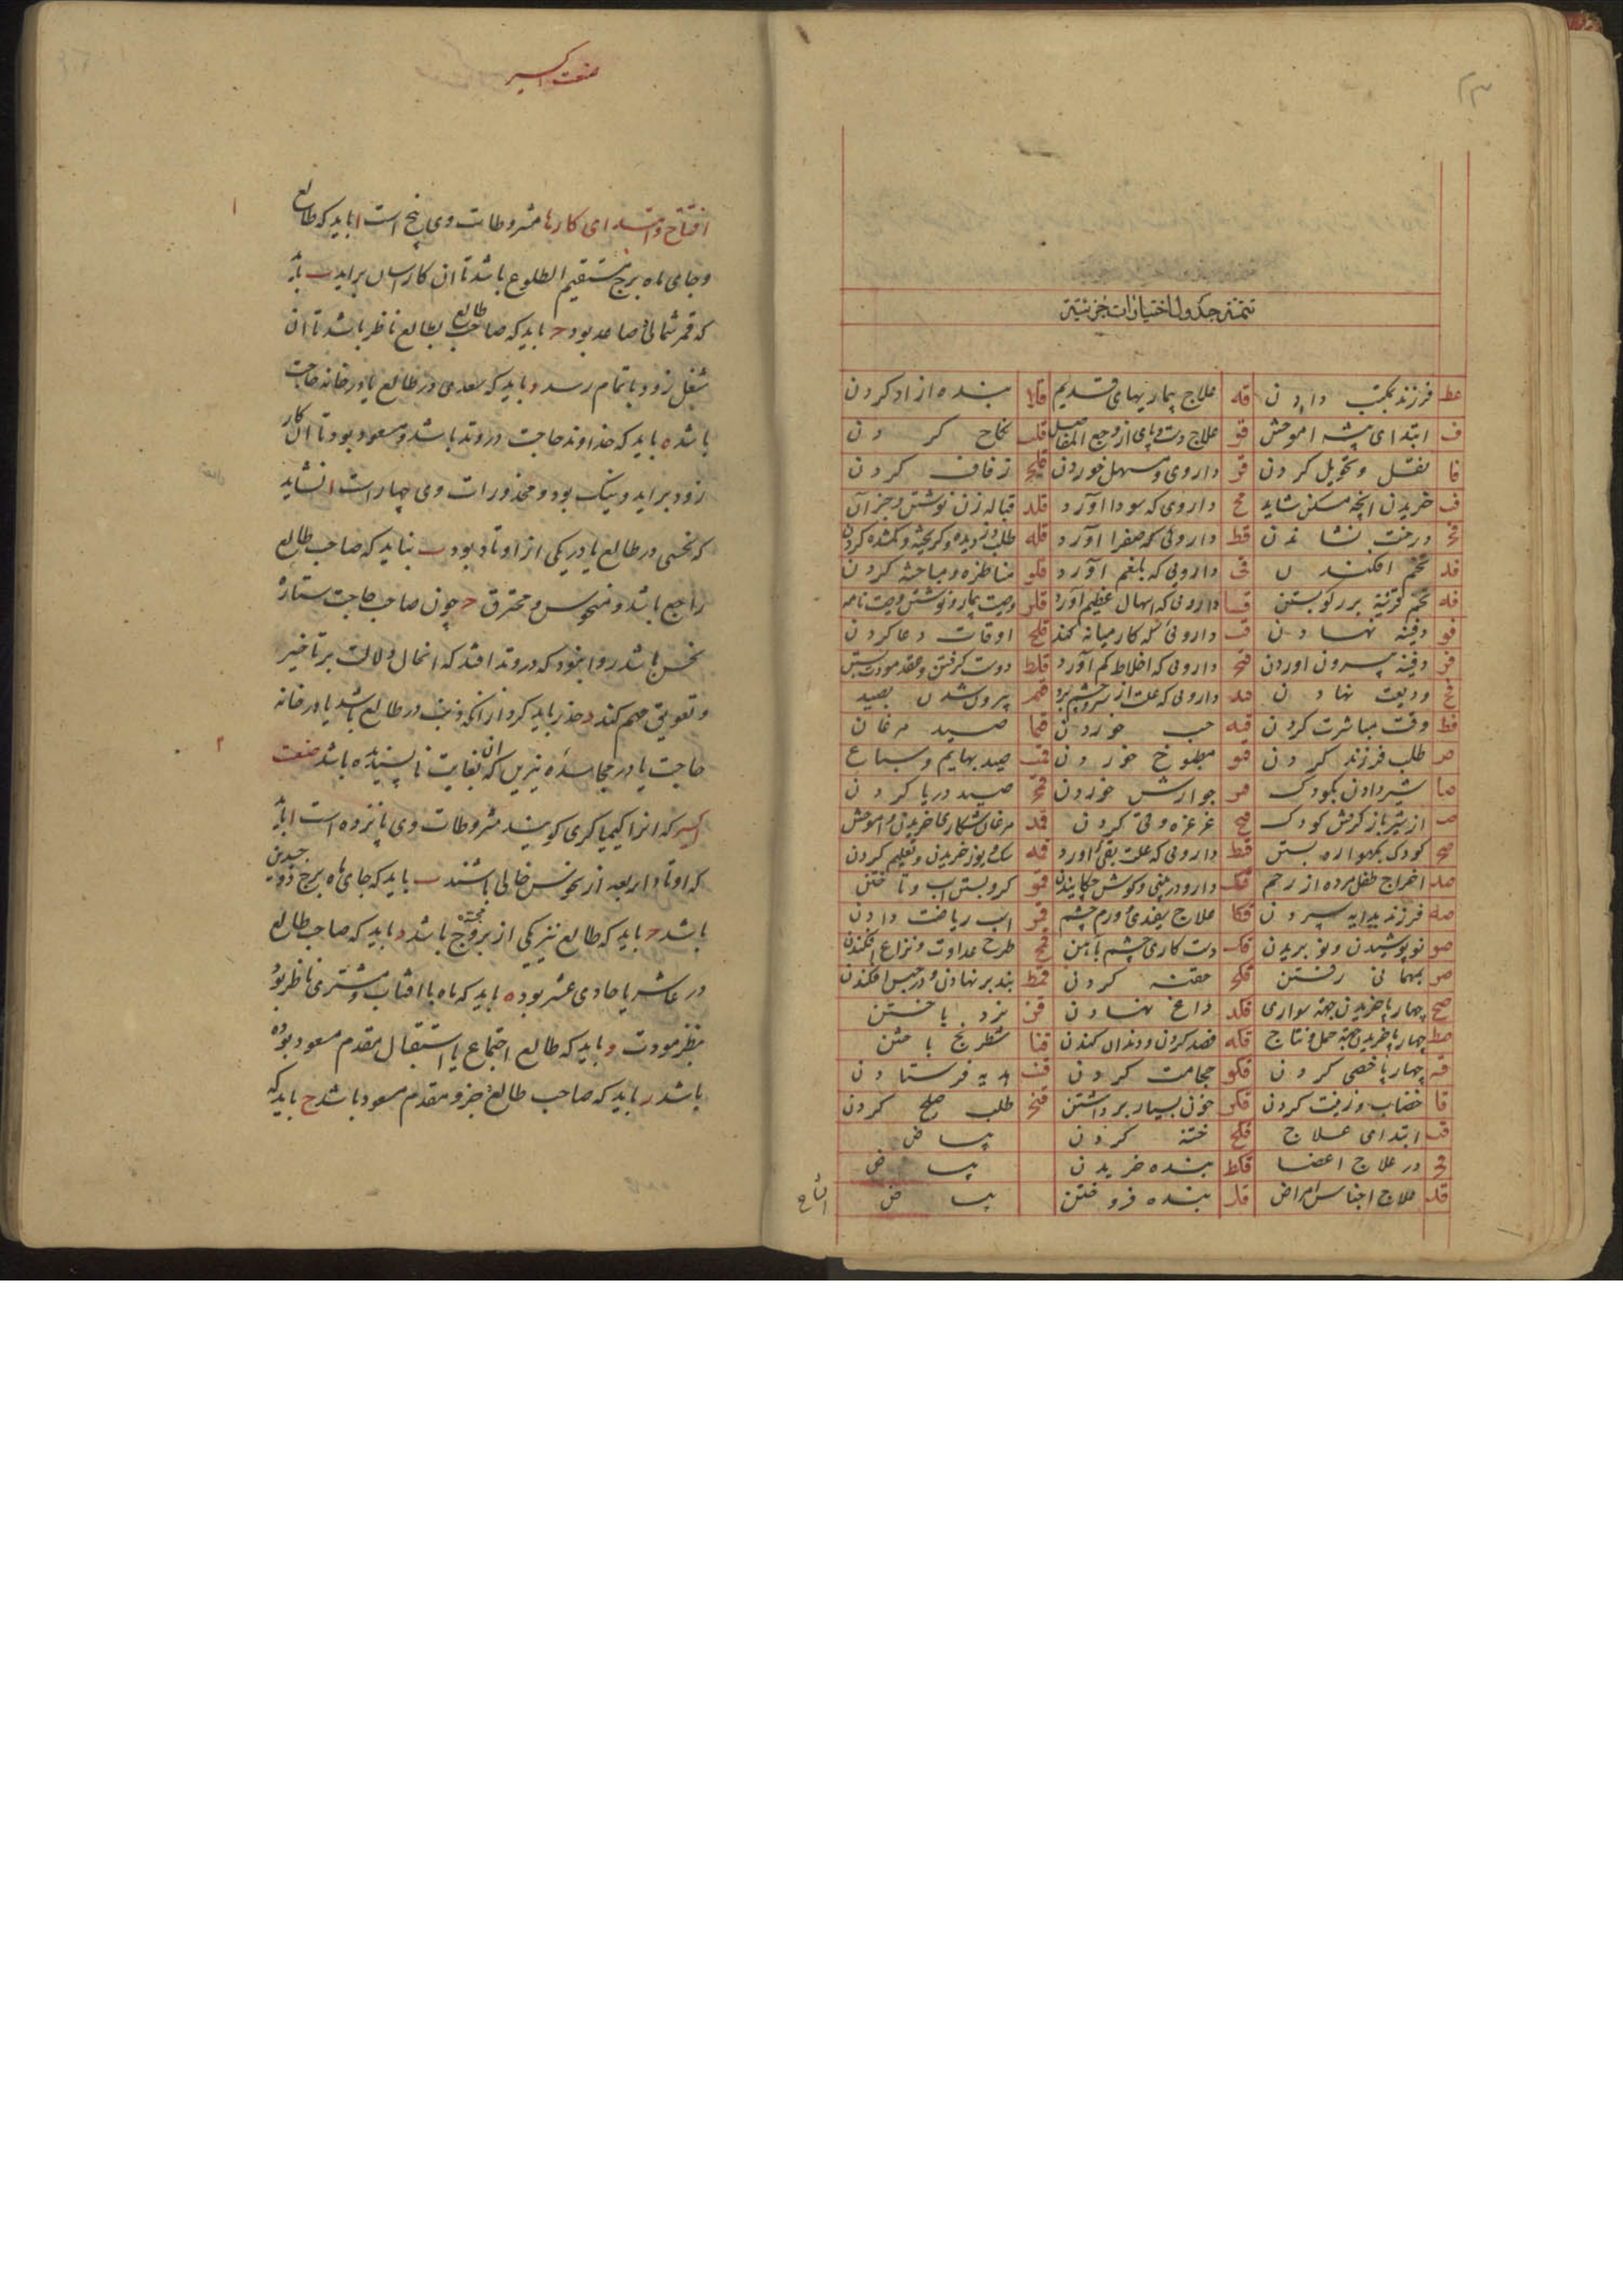 تتمّهٔ جدول اختیارات جزئیّه
عط فرزند بمکتب دادن قه علاج بیماریهای قدیم قلا بنده ازاد کردن
ف ابتدای پیشه اموختن قو علاج دست و پای از وجع المفاصل قلب نکاح کردن
فا نقل و تحویل کردن قز داروی مسهل خوردن قلج زفاف کردن
فب خریدن انچه مسکن شاید قح داروی که سودا آورد قلد قباله زن نوشتن و جز آن
فج درخت نشاندن قط داروئی که صفرا آورد قله طلب دزدیده و کریخته و کمشده کردن
فد تخم افکندن قی داروئی که بلغم آورد قلو مناظره و مباحثه کردن
فه تخم بر کو بستن قیا داروئی که اسهال عظیم آورد قلز وصیت بیمار و نوشتن وصیت نامه
فو دفینه نهادن قیب داروئی که کار میانه کند قلح اوقات دعا کردن
فز دفینه بیرون اوردن قیج داروئی که اخلاط کم آورد قلط دوست کرفتن و عقد مودت بستن
فح ودیعت نهادن قید داروئی که علت از سر و چشم برد قم بیرون شدن بصید
فط وقت مباشرت کردن قیه حب خوردن قما صید مرغان
ص طلب فرزند کردن قیو مطبوخ خوردن قمب صید بهایم و سباع
صا شیر دادن بکودک قیز جوارش خوردن قمج صید دریا کردن
صب از شیر باز کرفتن کودک قیح غرغره و قی کردن قمد مرغان شکاری خریدن و اموختن
صج کودک بکهواره بستن قیط داروئی که علت بقی اورد قمه سک و یوز خریدن و تعلیم کردن
صد اخراج طفل مرده از رحم قک دارو در بینی و کوش چکانیدن قمو کرو بستن اسب و تاختن
صه فرزند بدایه سپردن قکا علاج سفیدی و ورم چشم قمز اسب ریاضت دادن
صو نو پوشیدن و نو بریدن قکب دست کاری چشم بآهن قمح طرح عداوت و نزاع افکندن
صز بمهمانی رفتن قکج حقنه کردن قمط بند بر نهادن و در حبس افکندن
صح چهارپا خریدن جهة سواری قکد داغ نهادن قن نرد باختن
صط چهارپا خریدن جهة حمل و نتاج قکه فصد کردن و دندان کندن قنا شطرنج باختن
ق چهارپا خصی کردن قکو حجامت کردن قنب هدیه فرستادن
قا خضاب و زینت کردن قکز خون بسیار برداشتن قنج طلب صلح کردن
قب ابتدای علاج قکح ختنه کردن بیاض
قج در علاج اعضا قکط بنده خریدن بیاض
قد علاج اجناس امراض قل بنده فروختن بیاض
افتتاح
صنعت اکسیر
افتتاح و ابتدای کارها مشروطات وی پنج است ا باید که طالع ا
و جای ماه برج مستقیم الطلوع باشد تا ان کار اسان براید ب باید
که قمر شمالی صاعد بود ج باید که صاحب طالع بطالع ناظر باشد تا ان
شغل زود باتمام رسد د باید که سعدی در طالع یا در خانه حاجت
باشد ه باید که خداوند حاجت در وتد باشد و مسعود بود تا ان کار
زود براید و نیک بود و محذورات وی چهار است ا نشاید
که نحسی در طالع یا در یکی از اوتاد بود ب نباید که صاحب طالع
راجع باشد و منحوس و محترق ج چون صاحب حاجت ستارهٔ
نحس باشد روا نبود که در وتد افتد که انحال دلالت بر تاخیر
و تعویق مهم کند د حذر باید کرد از انکه ذنب در طالع باشد یا در خانه
حاجت یا در مجاسدهٔ نیرین که ان بغایت ناپسندیده باشد صنعت ۲
اکسیر که انرا کیمیاکری کویند مشروطات وی پانزده است ا باید
که اوتاد اربعه از نحوس خالی باشند ب باید که جای ماه برج ذو جسدین
باشد ج باید که طالع نیز یکی از بروج باشد د باید که صاحب طالع
در عاشر یا حادی عشر بود ه باید که ماه با افتاب و مشتری ناظر بود
بنظر مودت و باید که طالع اجتماع یا استقبال مقدم مسعود بوده
باشد ز باید که صاحب طالع و جزو مقدم مسعود باشد ح باید که